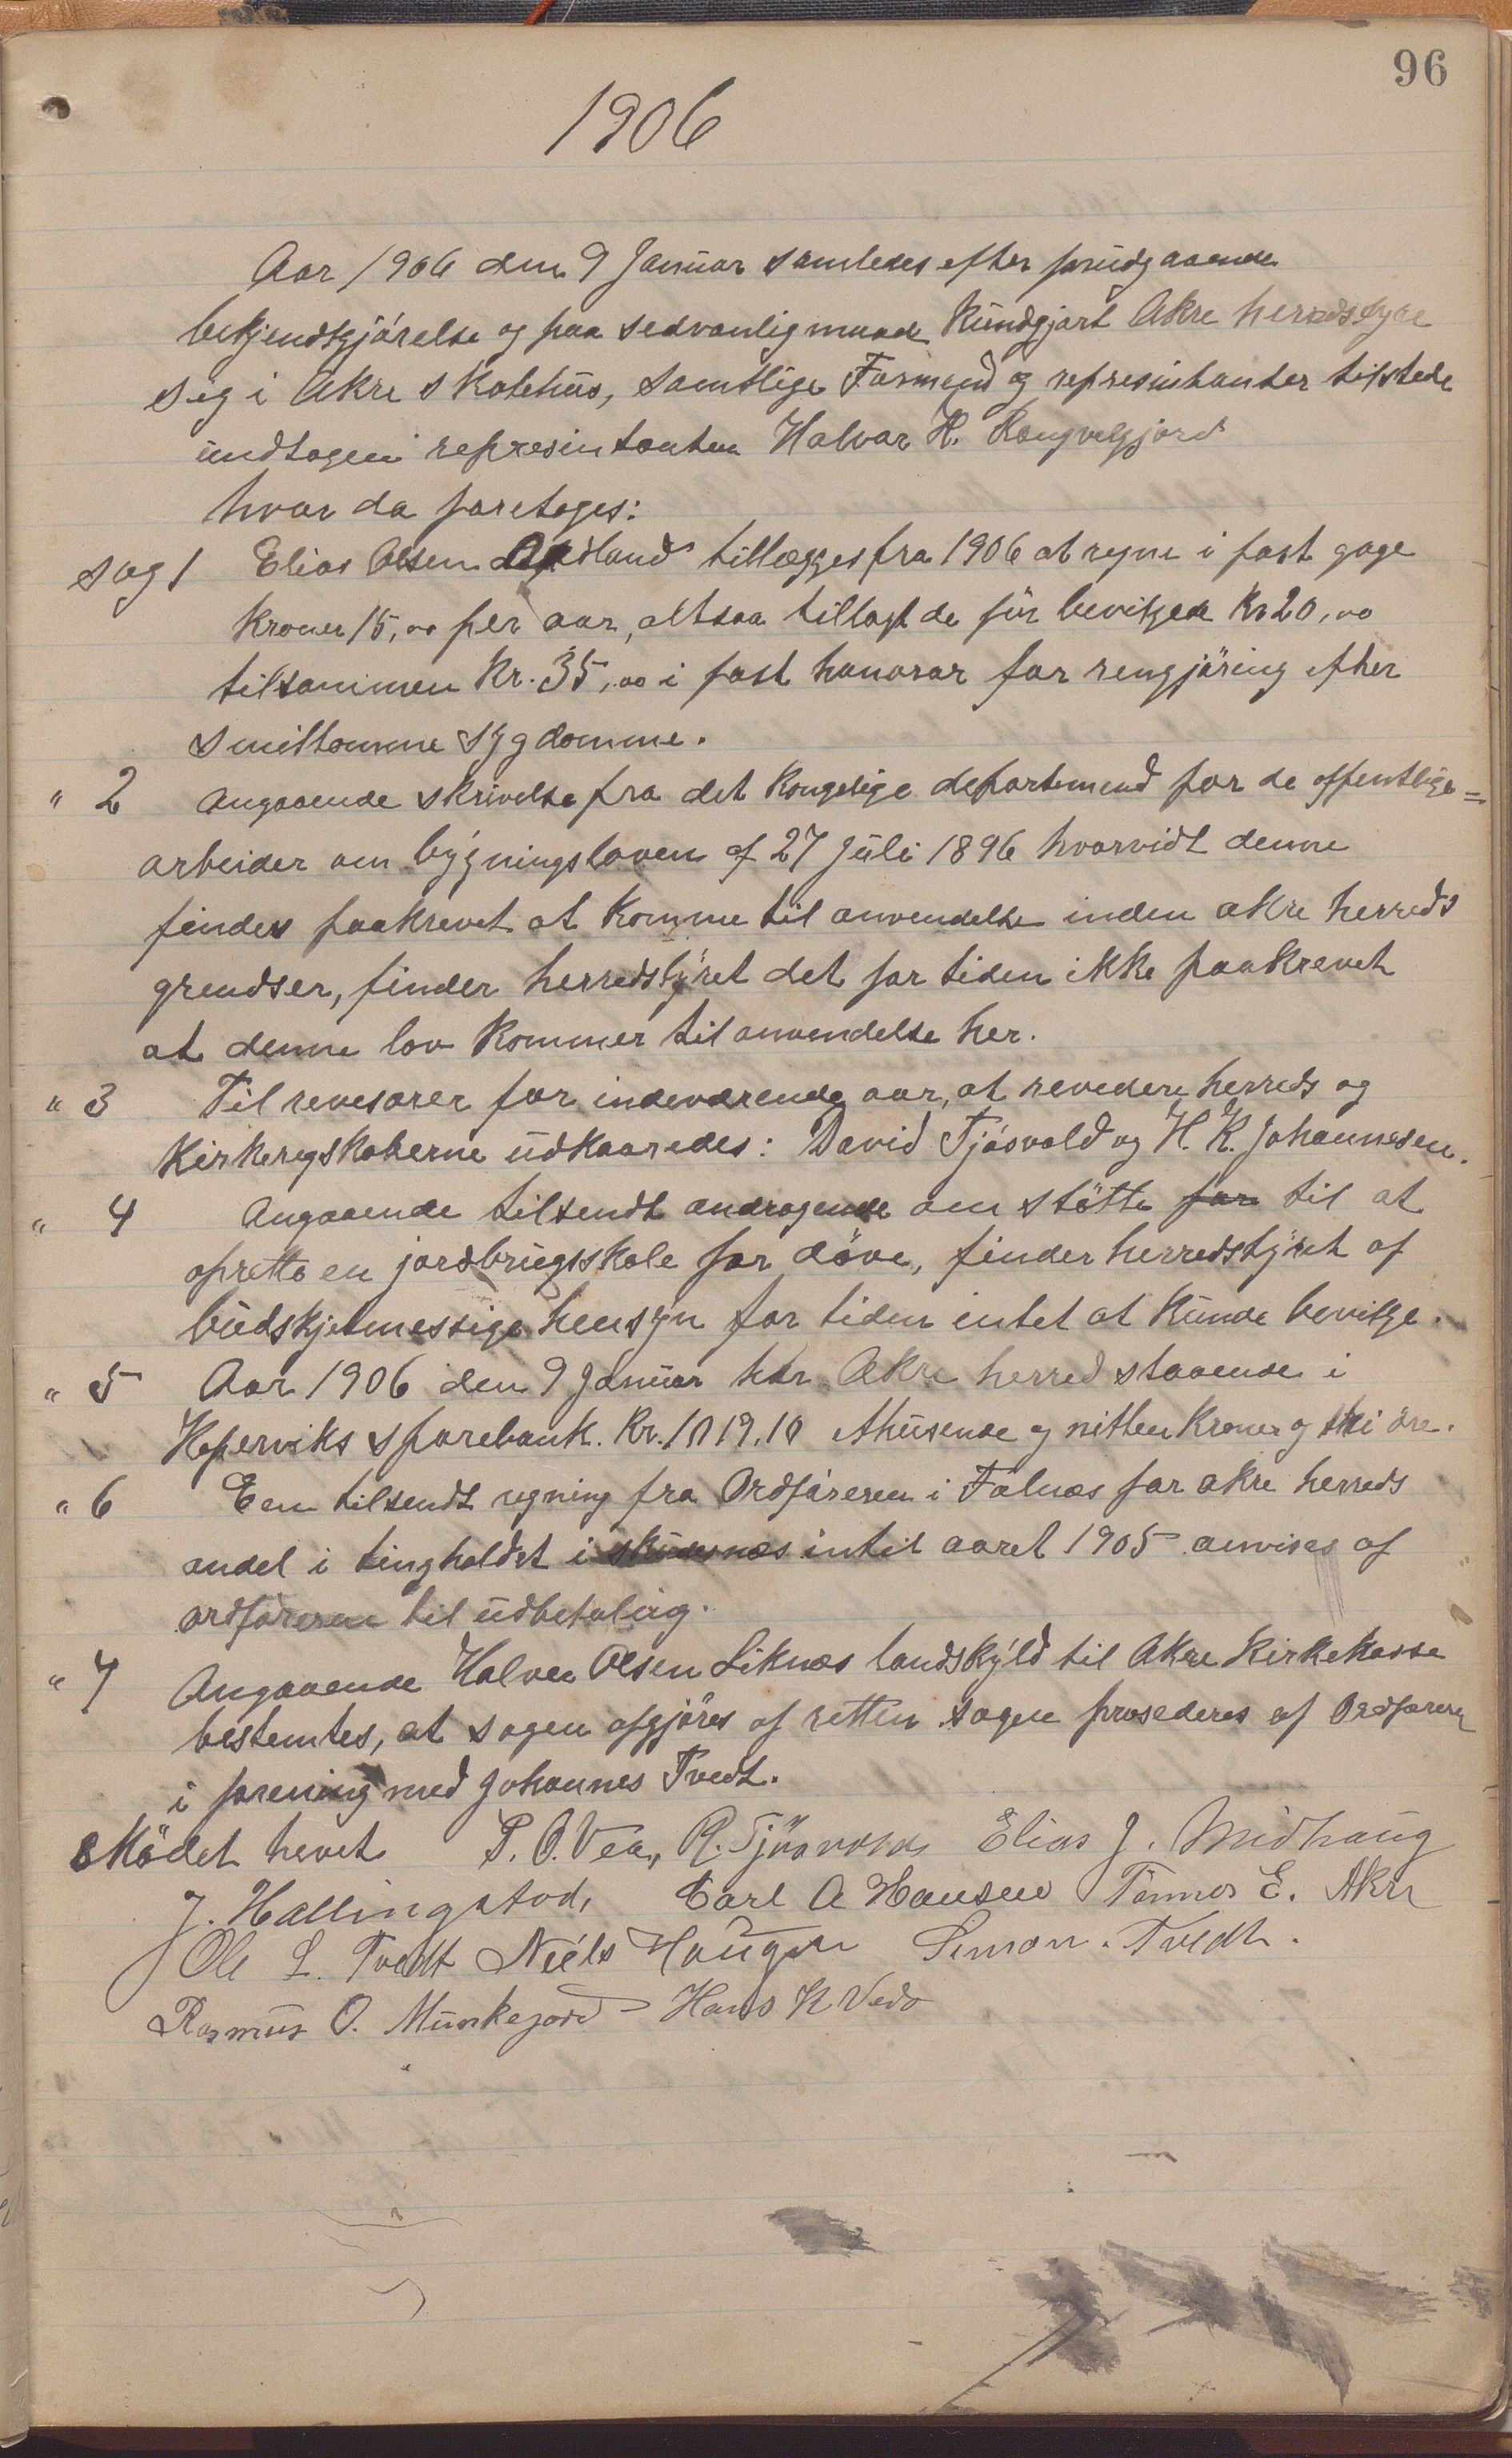 96
1906
Aar 1906 den 9 Januar samledes efter forudgaaende
bekjendtgjörelse og paa sedvanlig maade kundgjort Akre herredstyre
sig i Akre skolehus, samtlige Formend og represintanter tilstede
undtagen represintanten Halvar H. Rongvelgjord
hvor da foretoges:
sag 1 Elias Olsen Aadland tillægges fra 1906 at regne i fast gage
kroner 15,00 per aar, altsaa tillagt de för bevilgede kr 20,00
tilsammen Kr. 35,00 i fast honorar for rengjöring efter
smitsomme sygdomme.
" 2 angaaende skrivelse fra det kongelige departemend for de offentlige=
arbeider om bygningsloven af 27 Juli 1896 hvorvidt denne
findes paakrevet at komme til anvendelse inden akre herreds
grendser, finder herredstyret det for tiden ikke paakrevet
at denne lov kommer til anvendelse her.
" 3 Til revesorer for indeværende aar, at revedere herreds og
Kirkeregskaberne udkaaredes: David Tjösvold og H. K. Johannesen.
" 4 Angaaende tilsendt andragende om stötte for til at
oprette en jordbrugsskole for döve, finder herredstyret af
budskjetmessige hensyn for tiden intet at kunde bevilge.
" 5 Aar 1906 den 9 Januar har Akre herred staaende i
Koperviks sparebank. Kr. 1019.10 ethusende og nitten kroner og ti öre.
" 6 Een tilsendt regning fra Ordföreren i Falnæs for akre herreds
andel i tingholdet i skudesnæs intil aaret 1905 anvises af
ordföreren til udbetaling.
" 7 Angaaende Halver Olsen Liknæs landskyld til Akre Kirkekasse
bestemtes, at sagen afgjöres af retten sagen prosederes af Ordförere
i forening med Johannes Tvedt.
Mödet hevet P. O. Vea, R. Tjösvold Elias J. Midhaug
J. Hallingstad, Carl A Hansen Tönnes E. Akre
Ole L. Tvedt Niels Haugen Simon. Tvedt.
Rasmus O. Munkejord Hans K Vedo